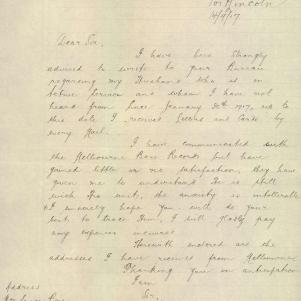 Port Lincoln
14/4/17
Dear Sir,
I have been strongly
advised to write to your Bureau
regarding my Husband who is on
active service and whom I have not
heard from since January 30th 1917, up to
this date I received Letters and Cards by
every Mail.
I have communicated with
the Melbourne Base Records but have
gained little or no satisfaction, they have
given me to understand He is still
with His unit, the anxiety is intollerable
I sincerely hope you will do your
best to trace Him, I will Gladly pay
any expenses incurred
Herewith enclosed are the
addresses I have received from Melbourne
Thanking you in anticipation
I am
Sir,
Address